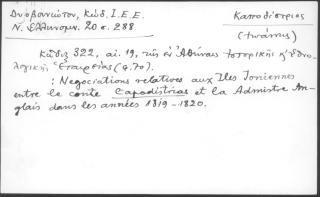 Δυοβουνιώτου, Κώδ. Ι. Ε. Ε.
Ν. Ἑλληνομν. 20 σ. 288.
Καποδίστριας
(Ἰωάννης)
Κῶδιξ 322, αἰ. 19, τῆς ἐν Ἀθήναις Ἱστορικῆς κ' Ἐθνο-
λογικῆς Ἑταιρείας (φ. 70).
: Negociations relatives aux Iles Ioniennes
entre le conte Capodistrias et la Admistre An-
glais dans les années 1819-1820.